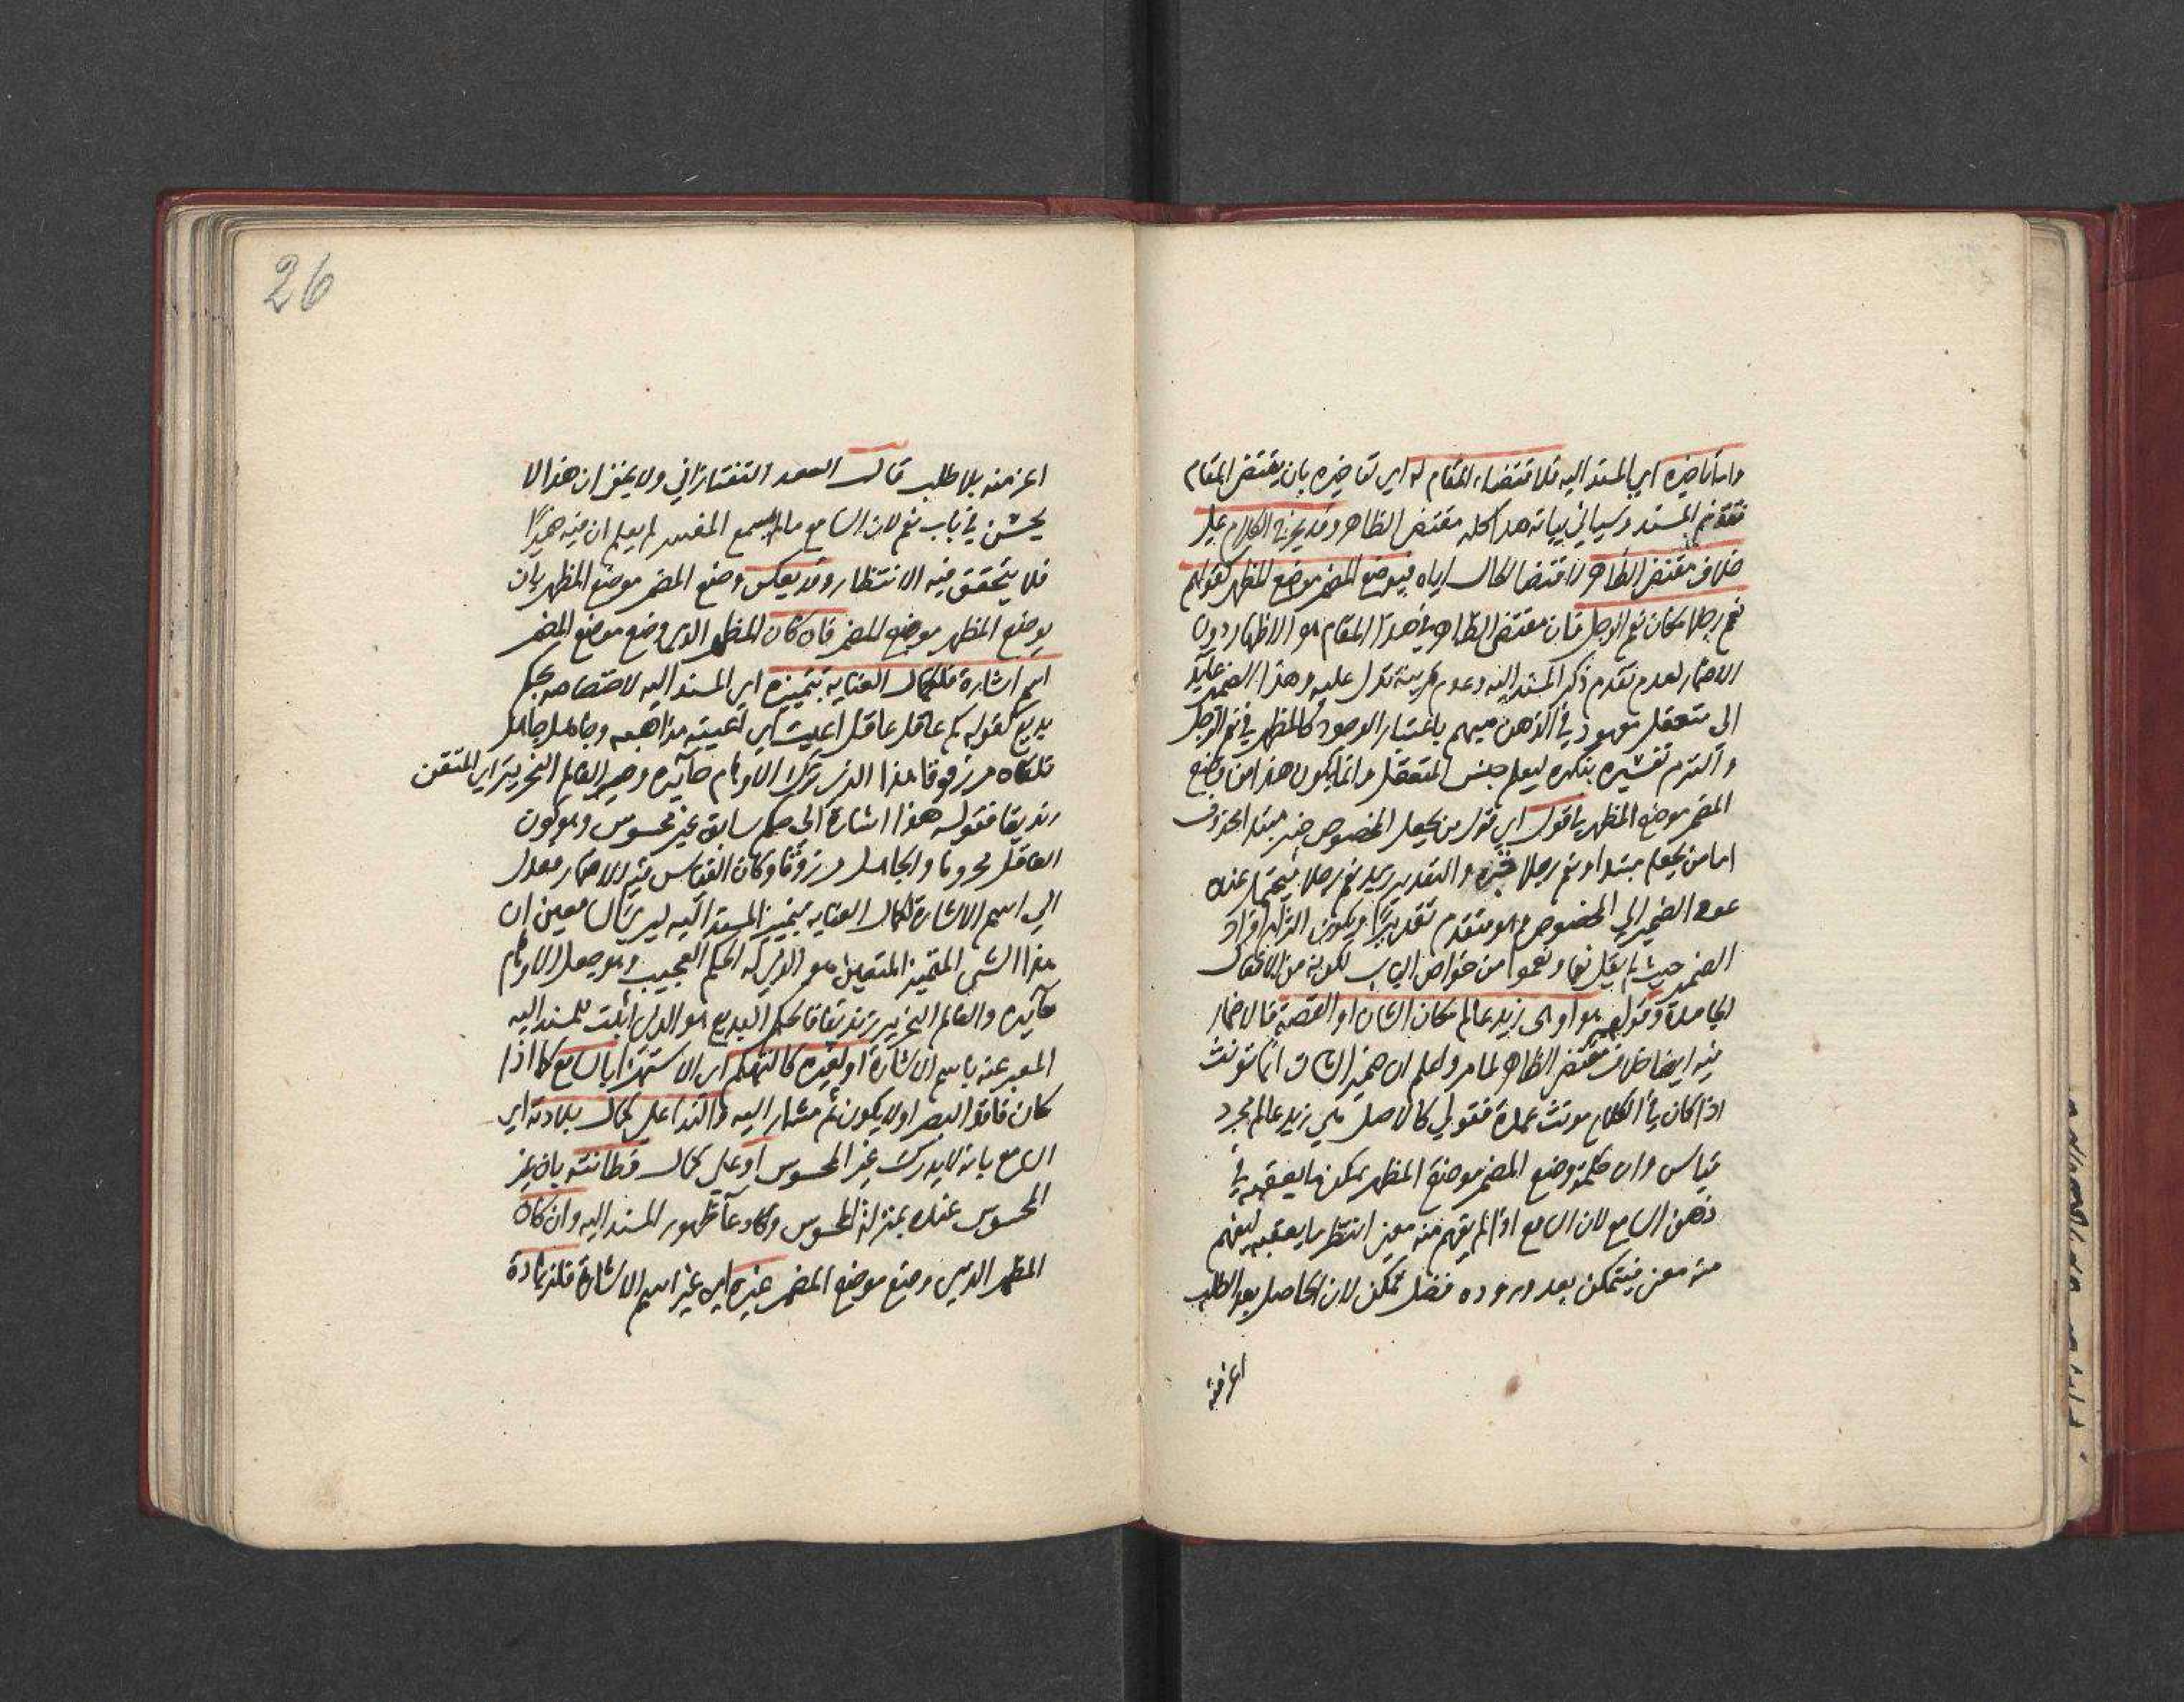 واما تاخيره اي المسند اليه فلاقتضاء المقام له اي تاخيره بان يقتضي المقام
تقديم المسند وسياتي بيانه هذا كله مقتضى الظاهر وقد يخرج الكلام على
خلاف مقتضى الظاهر لاقتضا الحال اياه فيوضع المضمر موضع المظهر كقولهم
نعم رجلا مكان نعم الرجل فان مقتضى الظاهر في هذا المقام هو الاظهار دون
الاضمار لعدم تقدم ذكر المسند اليه وعدم قرينة تدل عليه وهذا الضمير عايد
الى متعقل معهود في الذهن مبهم باعتبار الوجود كالمظهر في نعم الرجل
والتزم تفسيره بنكرة ليعلم جنس المتعقل وانما يكون هذا من وضع
المضمر موضع المظهر في قول اي قول من يجعل المخصوص خبر مبتدا محذوف
اما من يجعله مبتدا ونعم رجلا خبره والتقدير زيد نعم رجلا فيحتمل عنده
عود الضمير الى المخصوص وهو متقدم تقديرا ويكون التزام افراد
الضمير حيث لم يقل نعما ونعموا من خواص الباب لكونه من الافعال
الجامدة وقولهم هو او هي زيد عالم مكان الشان او القصة فالاضمار
فيه ايضا خلاف مقتضى الظاهر لما مر واعلم ان ضمير الشان انما يونث
اذا كان في الكلام مونث عمدة فقولي كالاصل هي زيد عالم مجرد
قياس وان حكمة وضع المضمر موضع المظهر يمكن ما يعقبه في
ذهن السامع لان السامع اذا لم يفهم منه معنى انتظر ما يعقبه ليفهم
منه معنى فيتمكن بعد وروده فضل تمكن لان الحاصل بعد الطلب
اعز منه
26
اعز منه بلا طلب قال السعد التفتازاني ولا يخفى ان هذا لا
يحسن في باب نعم لان السامع ما لم يسمع المفسر لم يعلم ان فيه ضميرا
فلا يتحقق فيه الانتظار وقد يعكس وضع المضمر موضع المظهر بان
يوضع المظهر موضع المضمر فان كان المظهر الذي وضع موضع المضمر
اسم اشارة فلكمال العناية بتمييزه اي المسند اليه لاختصاصه بحكم
بديع كقوله كم عاقل عاقل اعيت اي اعيته مذاهبه وجاهل جاهل
تلقاه مرزوقا هذا الذي ترك الاوهام حائرة وصير العالم النحرير اي المتقن
زنديقا فقوله هذا اشارة الى حكم سابق غير محسوس وهو كون
العاقل محروما والجاهل مرزوقا وكان القياس فيه الاضمار فعدل
الى اسم الاشارة لكمال العناية بتمييز المسند اليه ليري السامعين ان
هذا الشي المتميز المتعين هو الذي له الحكم العجيب وهو جعل الاوهام
حائرة والعالم النحرير زنديقا فالحكم البديع هو الذي اثبت للمسند اليه
المعبر عنه باسم الاشارة او لغيره كالتهكم اي الاستهزا بالسامع كما اذا
كان فاقد البصر او لا يكون ثم مشار اليه والندا على كمال بلادته اي
السامع بانه لا يدرك غير المحسوس او على كمال فطانته بان غير
المحسوس عنده بمنزلة المحسوس وكادعا ظهور المسند اليه وان كان
المظهر الذي وضع موضع المضمر غيره اي غير اسم الاشارة فلزيادة